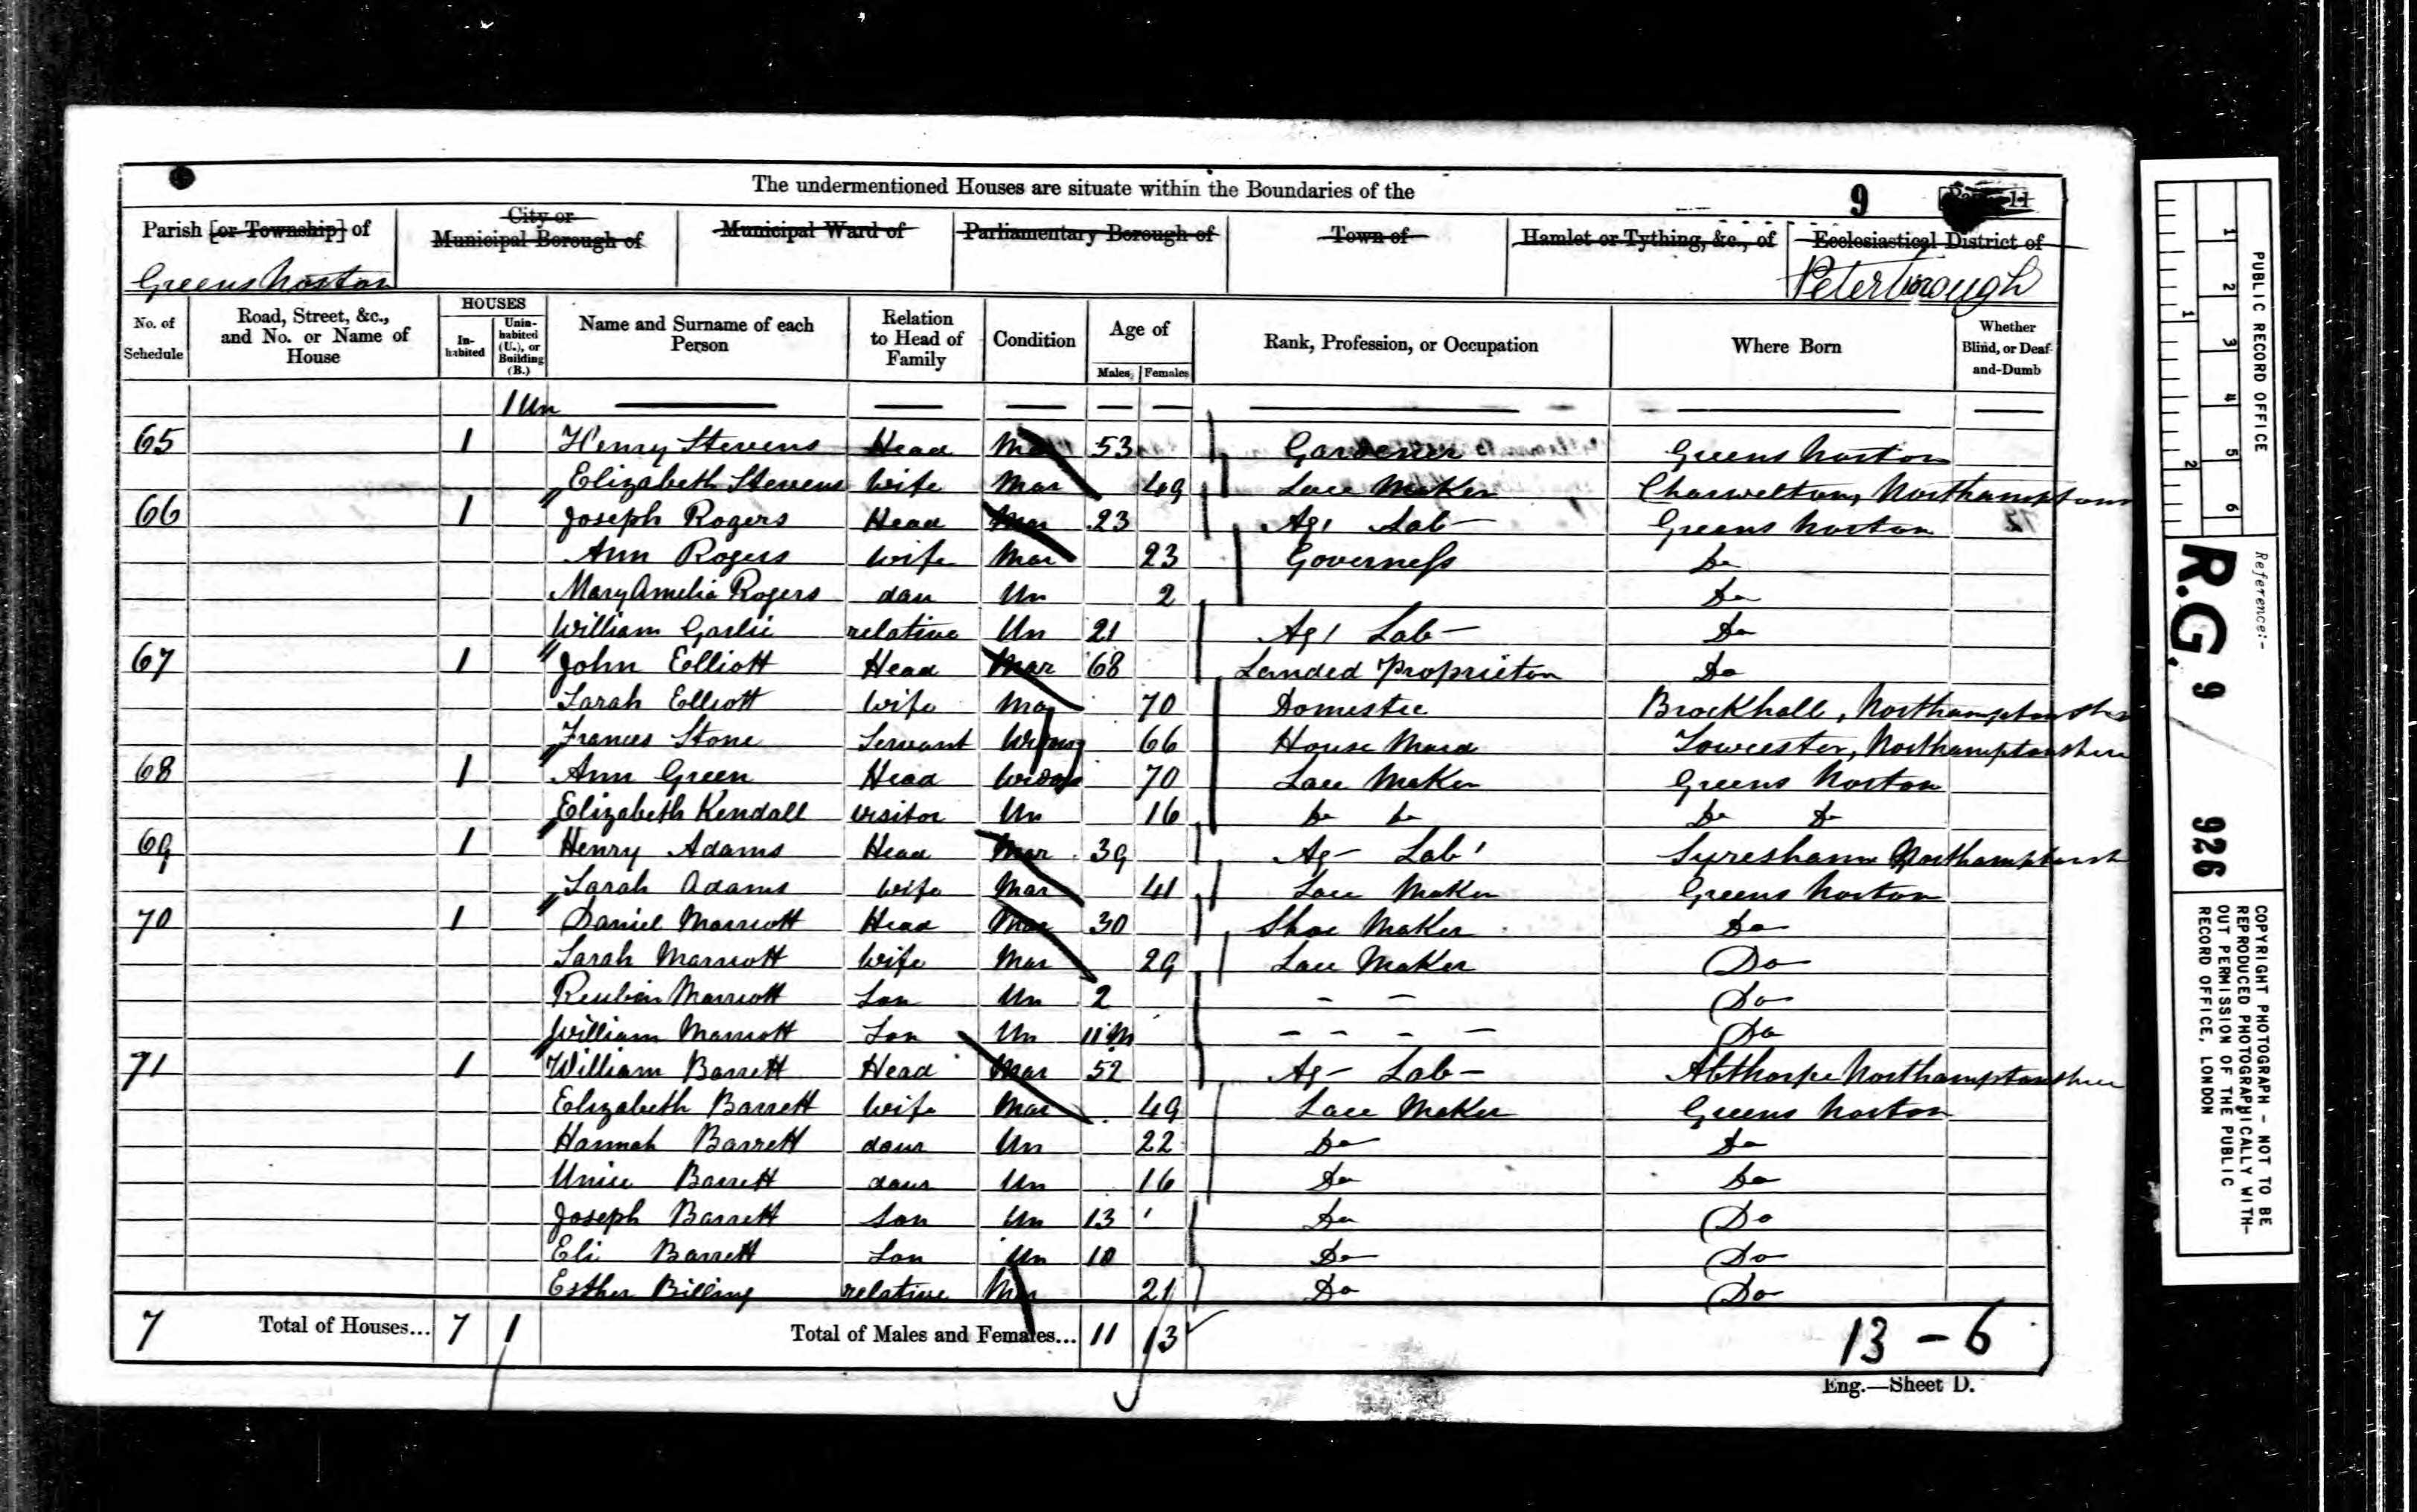 The undermentioned Houses are situate within the Boundaries of the
9
11
Parish [or Township] of
City or Municipal Borough of
Municipal Ward of
Parliamentary Borough of
Town of
Hamlet or Tything, &c., of
Ecclesiastical District of
Greens Norton
Peterborough
No. of Schedule
Road, Street, &c., and No. or Name of House
HOUSES
In-habited
Unin-habited (U.), or Building (B.)
Name and Surname of each Person
Relation to Head of Family
Condition
Age of
Males
Females
Rank, Profession, or Occupation
Where Born
Whether Blind, or Deaf-and-Dumb
1 Un
65 1 Henry Stevens Head Mar 53 Gardener Greens Norton
Elizabeth Stevens Wife Mar 49 Lace Maker Charwelton, Northamptons
66 1 Joseph Rogers Head Mar 23 Ag Lab Greens Norton
Ann Rogers Wife Mar 23 Governess Do
Mary Amelia Rogers dau Un 2 Do
William Garlic relative Un 21 Ag Lab Do
67 1 John Elliott Head Mar 68 Landed Proprietor Do
Sarah Elliott Wife Mar 70 Domestic Brockhall, Northamptonshire
Frances Stone Servant 66 House Maid Towcester, Northamptonshire
68 1 Ann Green Head Widow 70 Lace Maker Greens Norton
Elizabeth Kendall Visitor Un 16 Do Do Do Do
69 1 Henry Adams Head Mar 39 Ag Lab Syresham Northamptonsh
Sarah Adams Wife Mar 41 Lace Maker Greens Norton
70 1 Daniel Marriott Head Mar 30 Shoe Maker Do
Sarah Marriott Wife Mar 29 Lace Maker Do
Reuben Marriott Son Un 2 - - Do
William Marriott Son Un 11 M - - - - Do
71 1 William Barrett Head Mar 52 Ag Lab Abthorpe Northamptonshire
Elizabeth Barrett Wife Mar 49 Lace Maker Greens Norton
Hannah Barrett daur Un 22 Do Do
Unice Barrett daur Un 16 Do Do
Joseph Barrett Son Un 13 Do Do
Eli Barrett Son Un 10 Do Do
Esther Billing relative Mar 21 Do Do
7 Total of Houses... 7 1 Total of Males and Females... 11 13
13 - 6
Eng.—Sheet D.
PUBLIC RECORD OFFICE
1 2 3 4 5 6
1 2
Reference:-
R.G. 9 / 926
COPYRIGHT PHOTOGRAPH - NOT TO BE
REPRODUCED PHOTOGRAPHICALLY WITH-
OUT PERMISSION OF THE PUBLIC
RECORD OFFICE, LONDON